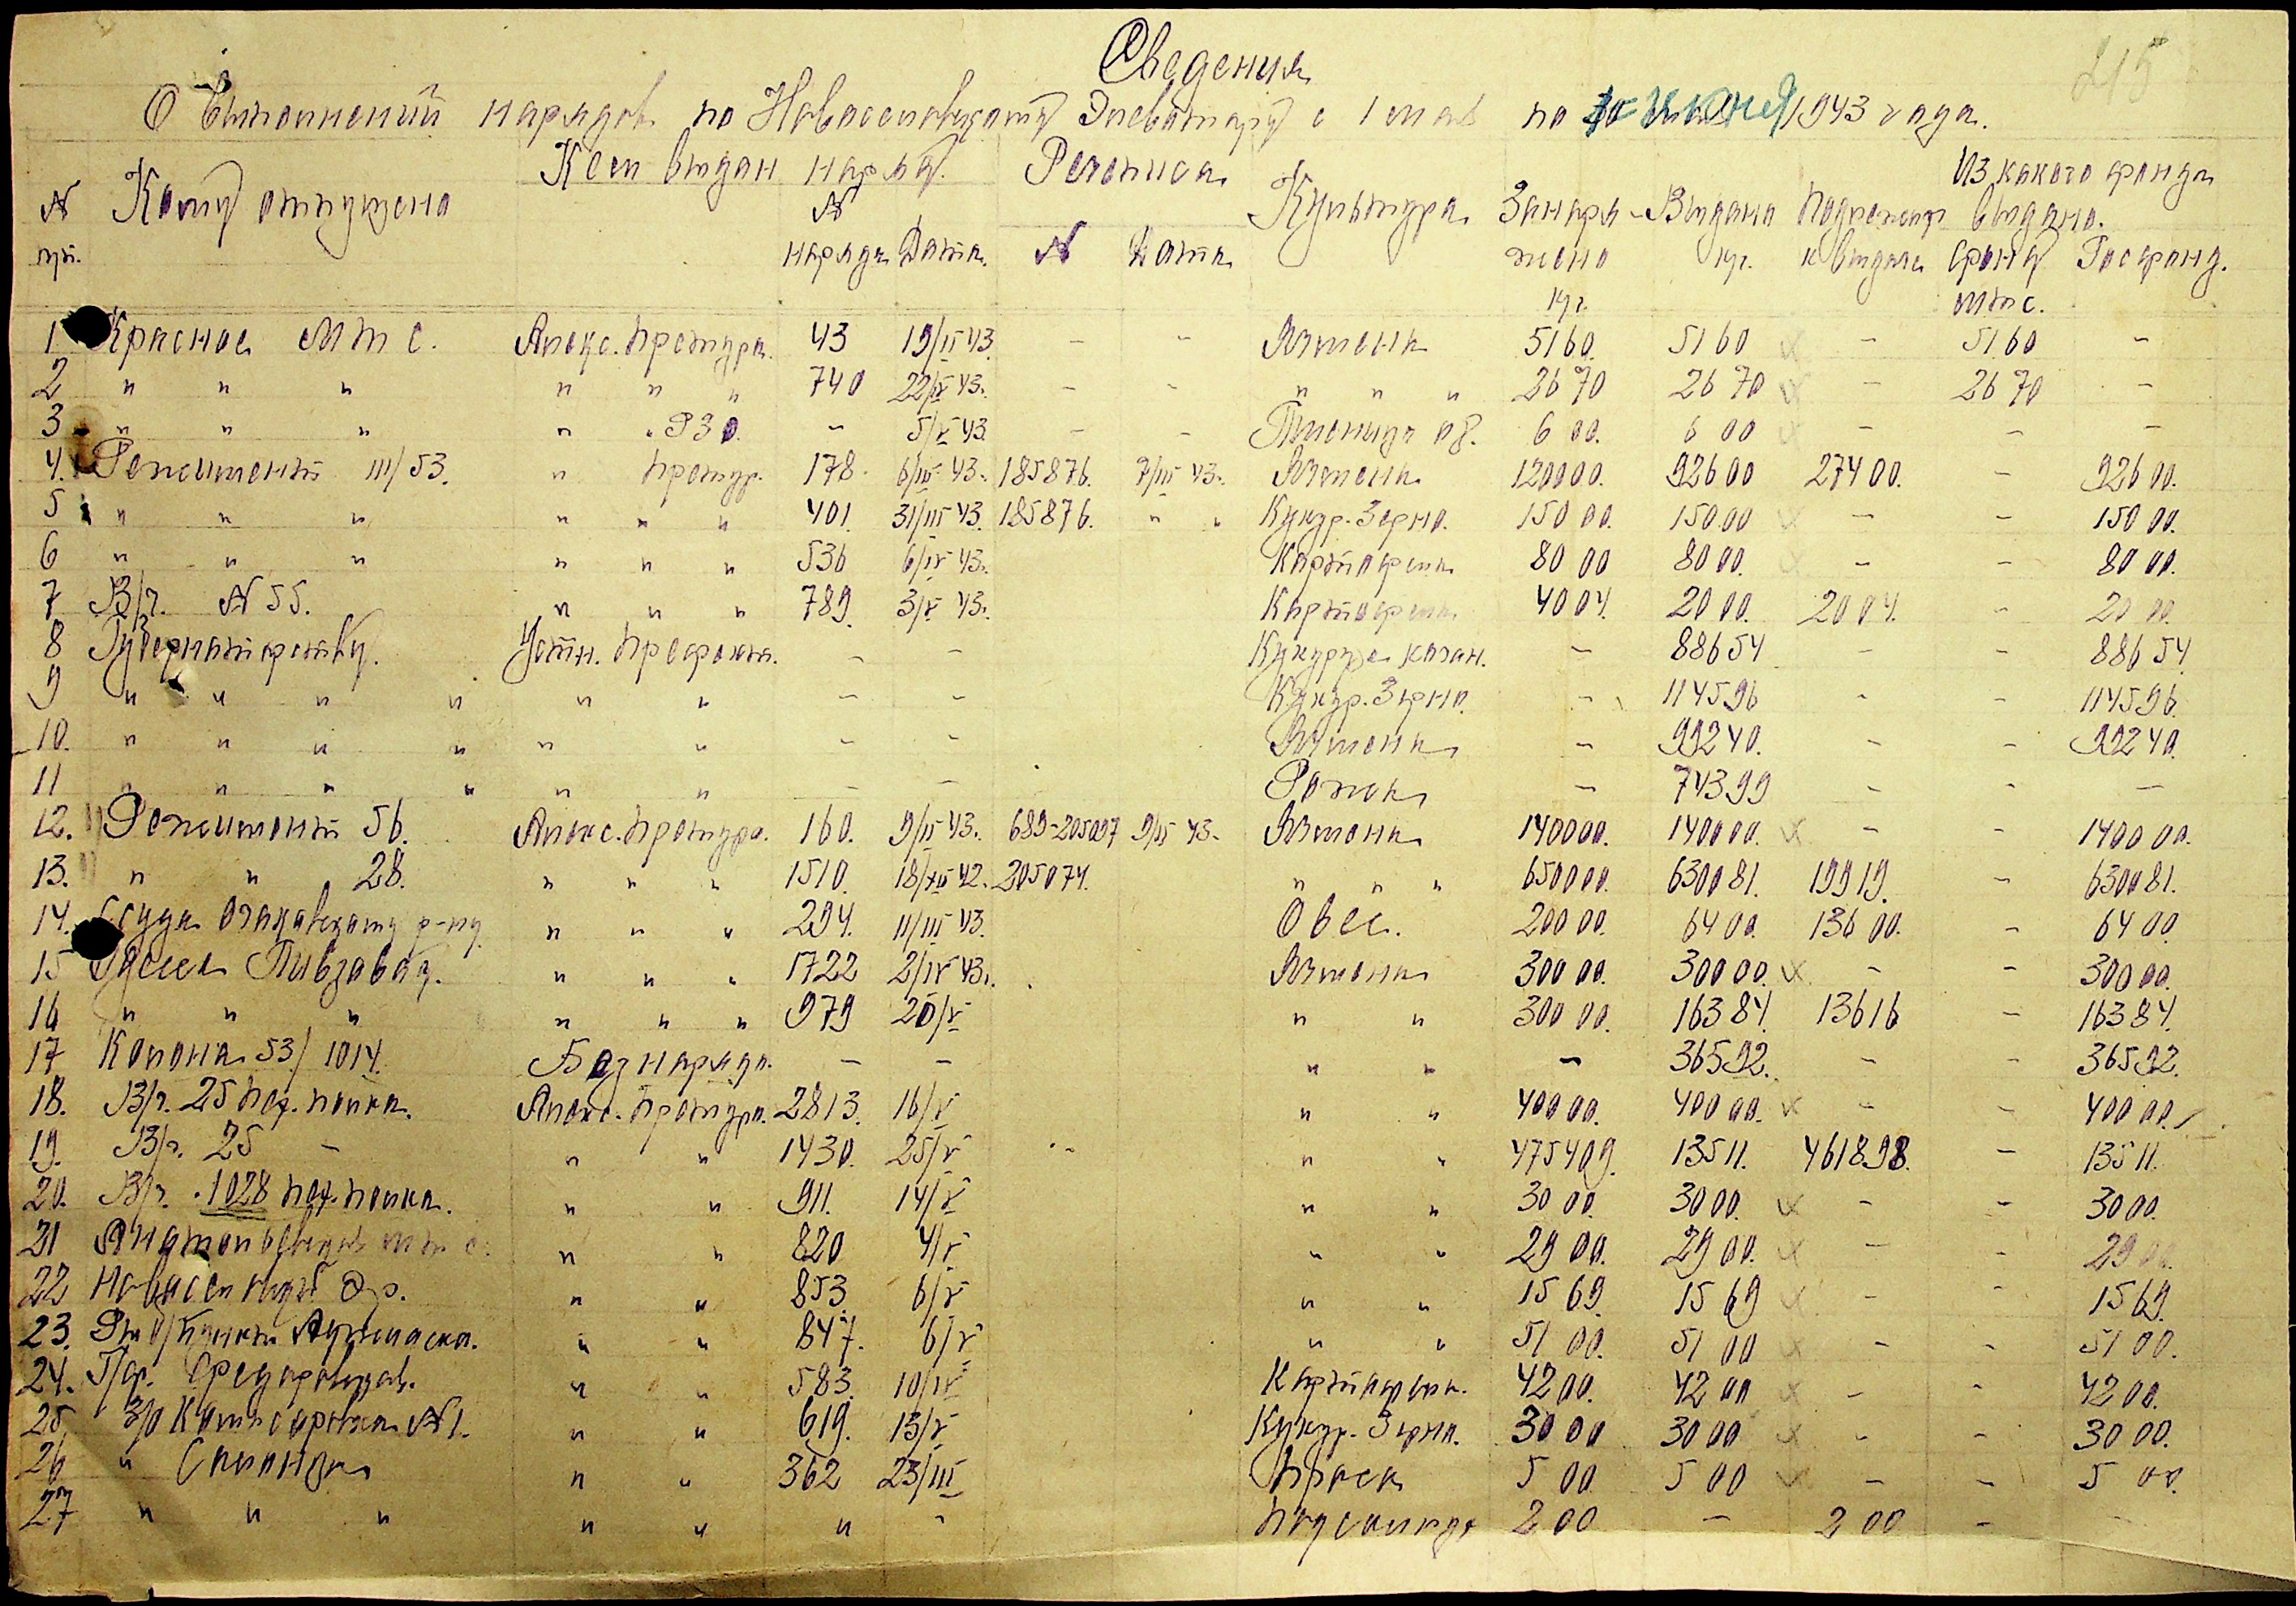 215
Сведения
О выполнений нарядов по Новоселовскому Элеватору с 1 мая по июня 1943 года.
№ пп. Кому отпущено Кем выдан наряд. № наряда Дата. Рехениса № Дата Культура Занаряжено кг. Выдано кг. Подлежит к выдаче Из какого фонда выдано. Фонд мтс. Госфонд.
1 Красное МТС. Алекс. Претура. 43 19/II 43. - - Ячмень 5160. 5160 х - 5160 -
2 " " " " " " 740 22/IV 43. - - " " " 2670 2670 х - 2670 -
3 " " " " . РЗО. - 5/V 43. - - Пшеница оз. 600. 600 х - - -
4. Режимент III/53. " Претур. 178. 6/III 43. 185876. 7/III 43. Ячмень 120000. 92600 27400. - 92600.
5 " " " " " " 401. 31/III 43. 185876. " " Кукур. Зерно. 15000. 15000 х - - 15000.
6 " " " " " " 536 6/IV 43. Картофель 8000 8000. х - - 8000.
7 В/ч. № 55. " " " 789. 3/V 43. Картофель 4004. 2000. 2004. - 2000.
8 Губернаторству. Устн. Префекта. - - Кукуруза качан. - 88654 - - 88654
9 " " " " " " - - Кукур. Зерно. - 114596 - - 114596.
10. " " " " " " - - Ячмень - 99240. - - 99240.
11 " " " " " " - - Рожь - 74399 - - -
12. Режимент 56. Алекс. Претура. 160. 9/II 43. 689-205097 9/II 43. Ячмень 140000. 140000. х - - 140000.
13. " " 28. " " " 1510. 18/XII 42. 205074. " " " 650000. 630081. 19919. - 630081.
14. Ссуда Очаковскому р-ну " " " 294. 11/III 43. Овес. 20000. 6400. 13600. - 6400.
15 Одесса Пивзавод. " " " 1722 2/IV 43. Ячмень 30000. 30000. х - - 30000.
16 " " " " " " 979 20/V " " 30000. 16384. 13616 - 16384.
17 Колона 53/1014. Без наряда. - - " " - 36592. - - 36592.
18. В/ч. 25 пех. полка. Алекс. Претура. 2813. 16/V " " 40000. 40000. х - - 40000.
19. В/ч. 25 - " " 1430. 25/V " " 475409. 13511. 461898. - 13511.
20. В/ч. 1028 пех. полка. " " 911. 14/V " " 3000. 3000. х - - 3000.
21 МТС. " " 820 4/V " " 2900. 2900. х - - 2900.
22 " " 853. 6/V " " 1569. 1569 х - - 1569.
23. пункт " " 847. 6/V " " 5100. 5100 х - - 5100.
24. " " 583. 10/IV Картофель. 4200. 4200 х - - 4200.
25 З/О Комисаровка № 1. " " 619. 13/V Кукур. Зерно. 3000 3000 х - - 3000.
26 " " " 362 23/III Просо 500 500 х - - 500.
27 " " " " " " - 200 - 200 - -